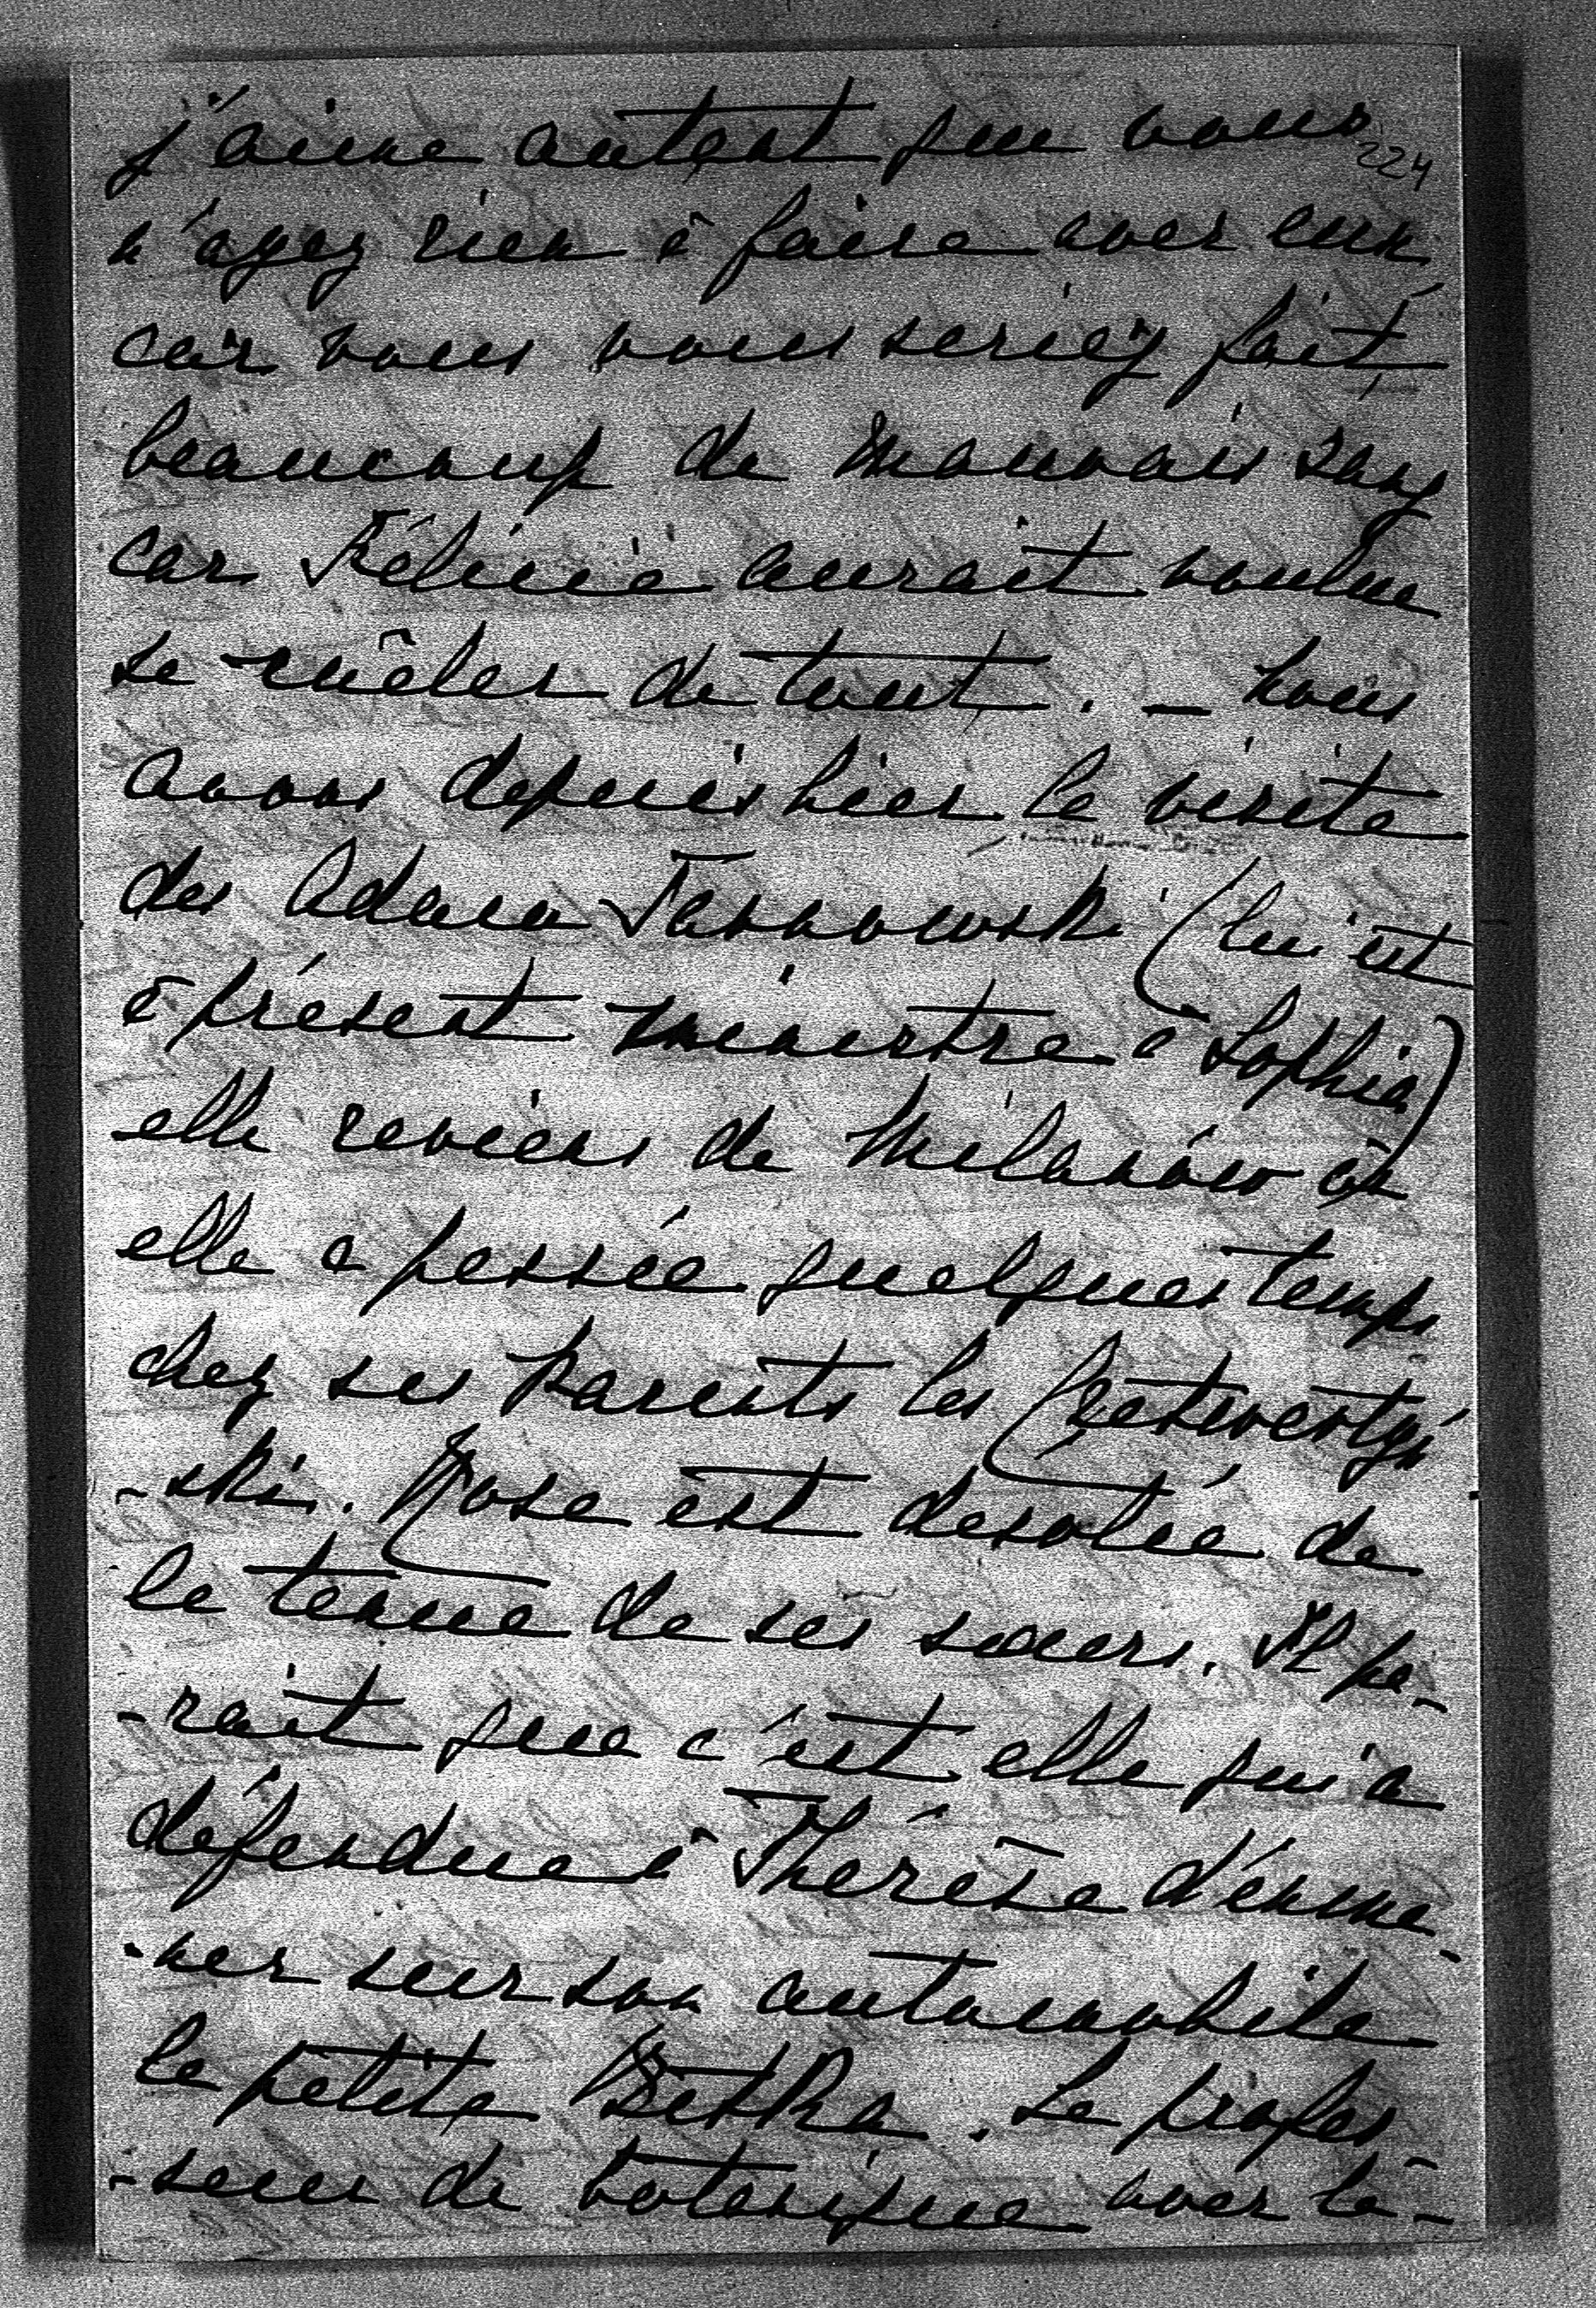 j'aime autant que vous
224
n'ayez rien à faire avec eux
car vous vous seriez fait
beaucoup de mauvais sang
car Félicie aurait voulue
se mêler de tout. – Nous
avons depuis hier la visite
des Adam Tarnowski (lui est
à présent ministre à Sophia)
elle reviens de Milanów où
elle a passée quelques temps
chez ses parents les Czetwertyń
-ski. Rose est desolée de
la tenue de ses sœurs. Il pa-
-rait que c'est elle qui a
défendue à Thérèse d'emme-
-ner sur son automobile
la petite Betka. Le profes
-seur de botanique avec la-